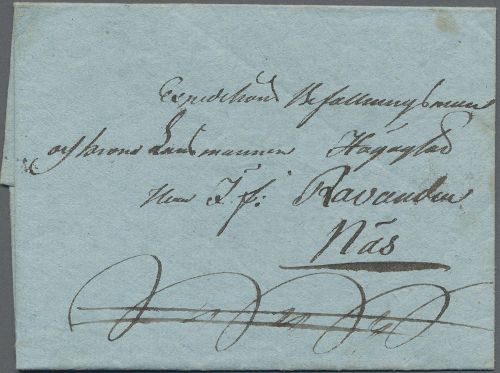 Expeditions Befallningsman
och Krono Länsmannen Högaktad
Herr J. f:
Näs